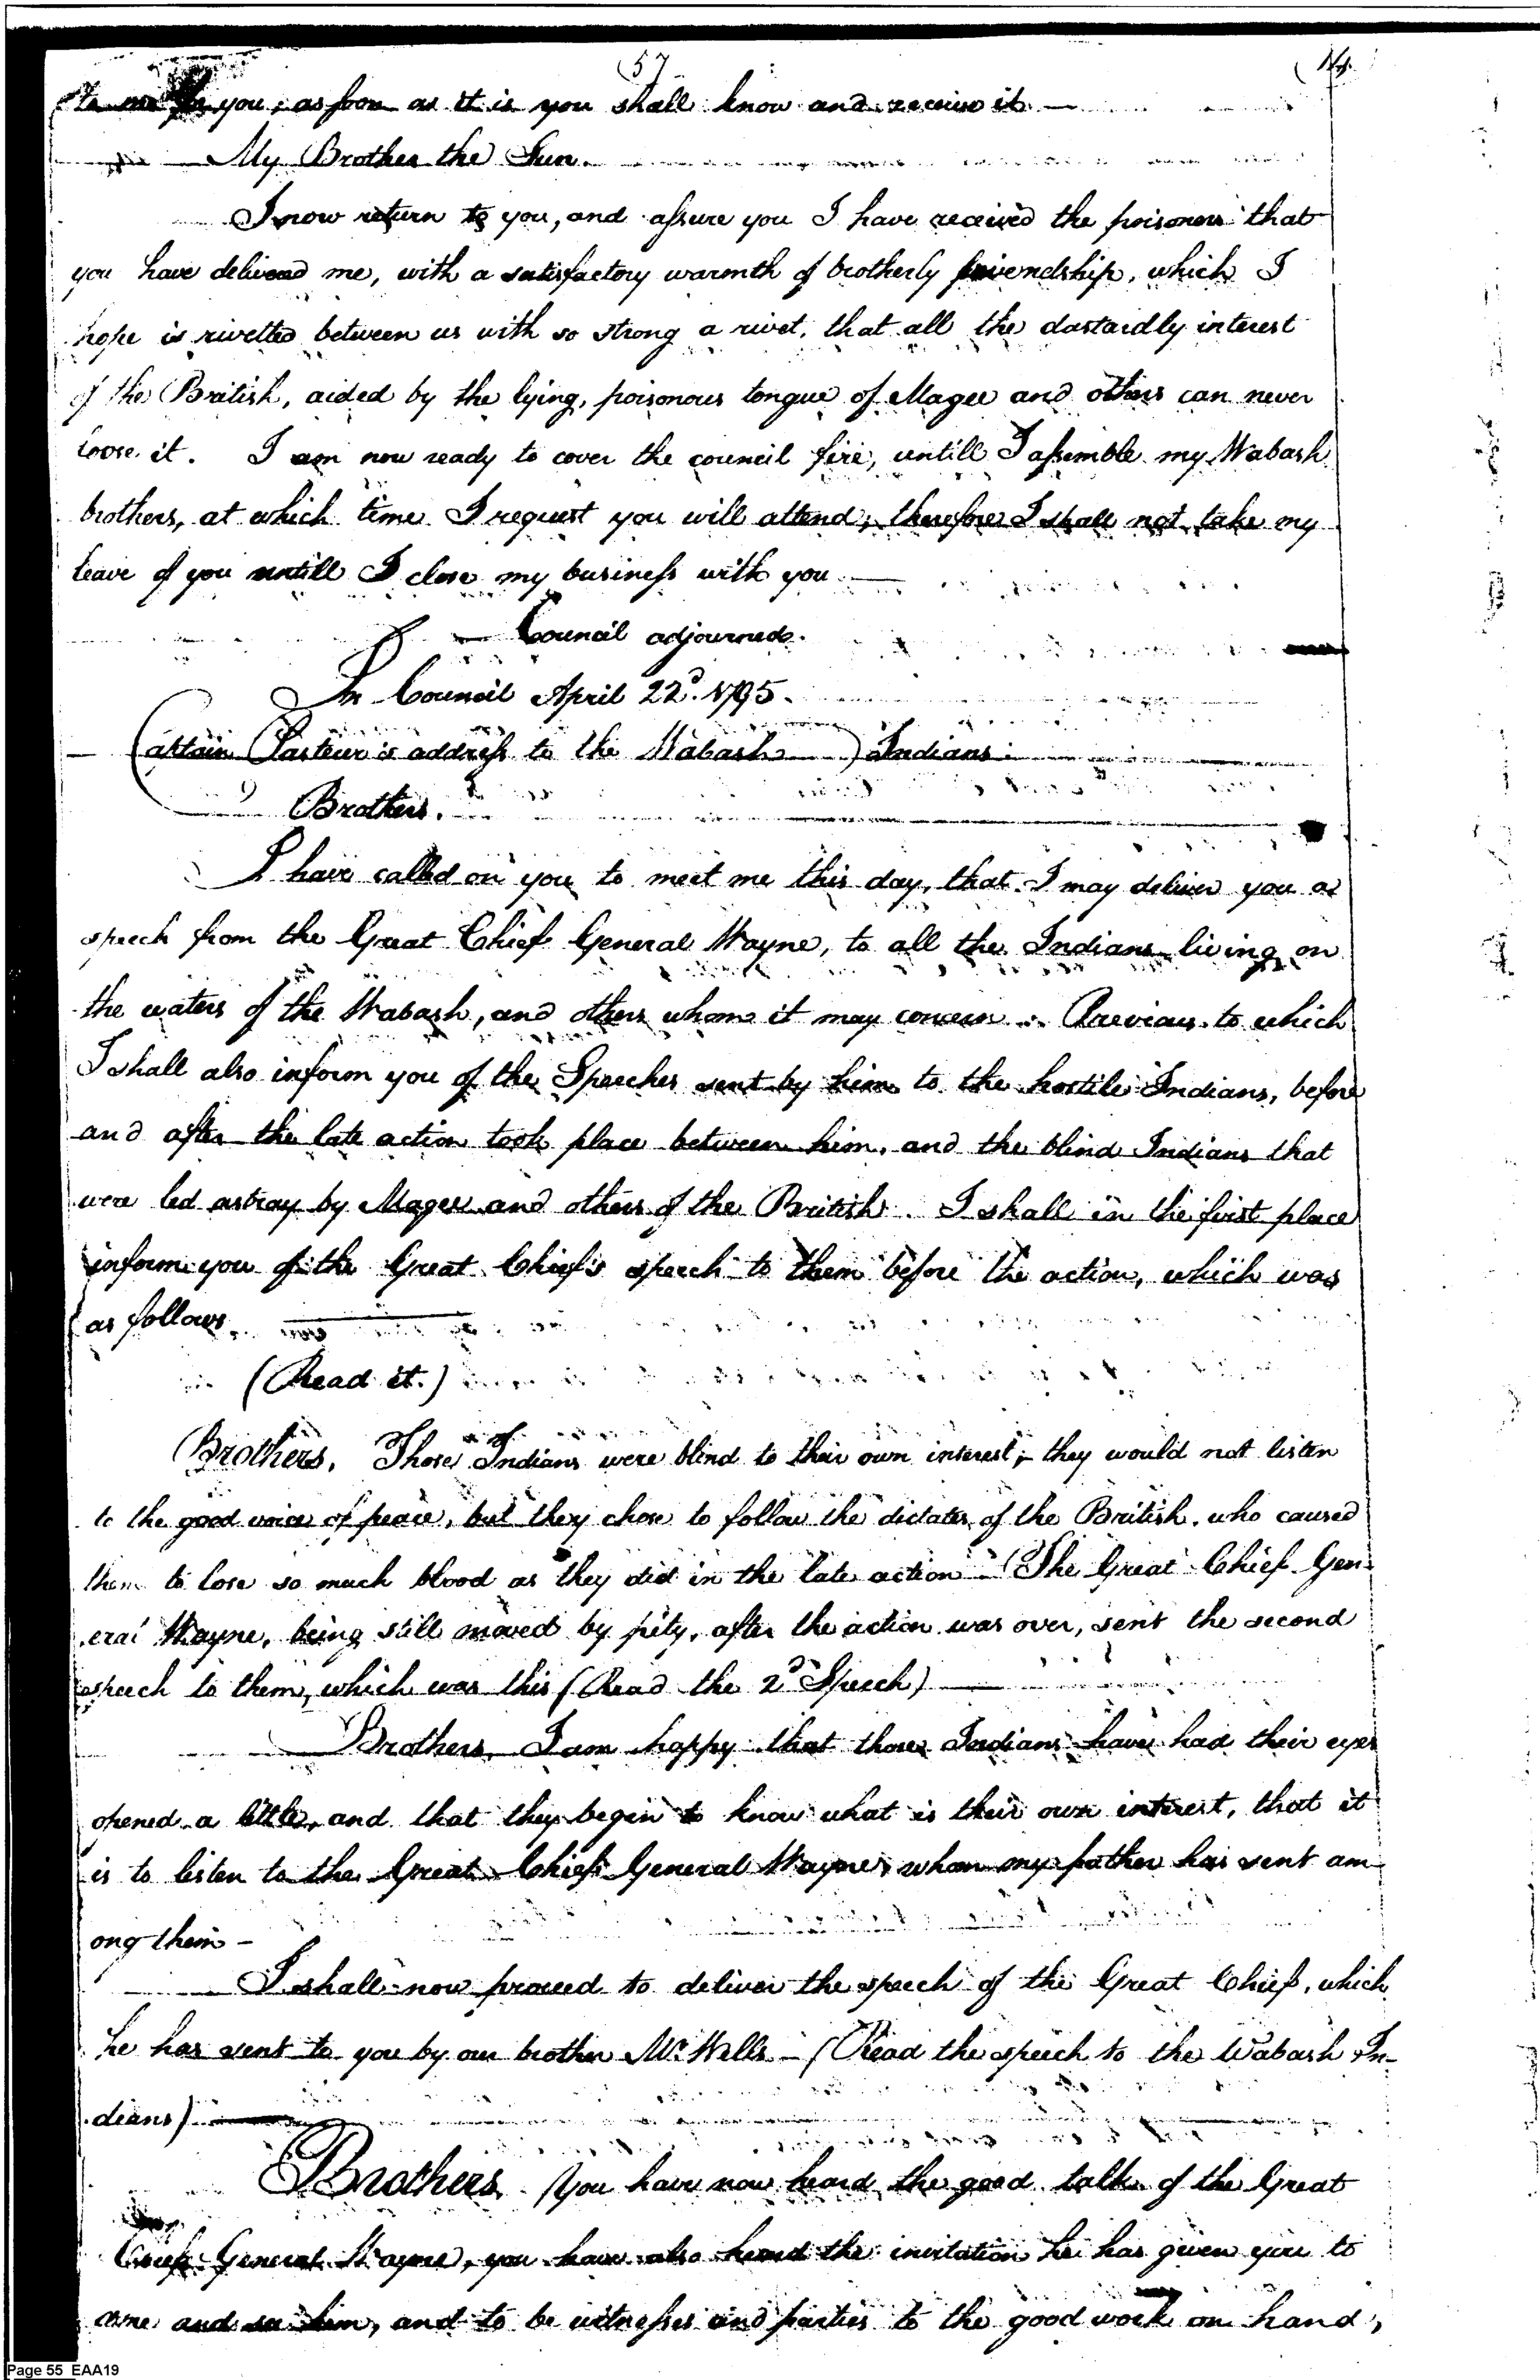 (57
you, as soon as it is you shall know and receive it. —
— My Brother the Sun.
I now return to you, and assure you I have received the prisoners that
you have delivered me, with a satisfactory warmth of brotherly friendship, which I
hope is rivetted between us with so strong a rivet, that all the dastardly interest
of the British, aided by the lying, poisonous tongue of Magee and others can never
loose it. I am now ready to cover the council fire, untill I assemble my Wabash
brothers, at which time I request you will attend; therefore I shall not take my
leave of you untill I close my business with you —
— Council adjourned.
In Council April 22d. 1795.
— Captain Pasteur's address to the Wabash Indians.
Brothers.
I have called on you to meet me this day, that I may deliver you a
speech from the Great Chief General Wayne, to all the Indians living on
the waters of the Wabash, and others whom it may concern. Previous to which
I shall also inform you of the Speeches sent by him to the hostile Indians, before
and after the late action took place between him, and the blind Indians that
were led astray by Magee and others of the British. I shall in the first place
inform you of the Great Chief's speech to them before the action, which was
as follows.
(Read it.)
Brothers. Those Indians were blind to their own interest; they would not listen
to the good voice of peace, but they chose to follow the dictates of the British, who caused
them to lose so much blood as they did in the late action — The Great Chief Gen-
eral Wayne, being still moved by pity, after the action was over, sent the second
speech to them, which was this (Read the 2d Speech) —
Brothers, I am happy that those Indians have had their eyes
opened a little, and that they begin to know what is their own interest, that it
is to listen to the Great Chief General Wayne, whom my father has sent am-
ong them —
I shall now proceed to deliver the speech of the Great Chief, which
he has sent to you by our brother Mr. Wells — (Read the speech to the Wabash In-
dians) —
Brothers. You have now heard the good talk of the Great
Chief General Wayne, you have also heard the invitation he has given you to
come and see him, and to be witnesses and parties to the good work on hand,
Page 55 EAA19